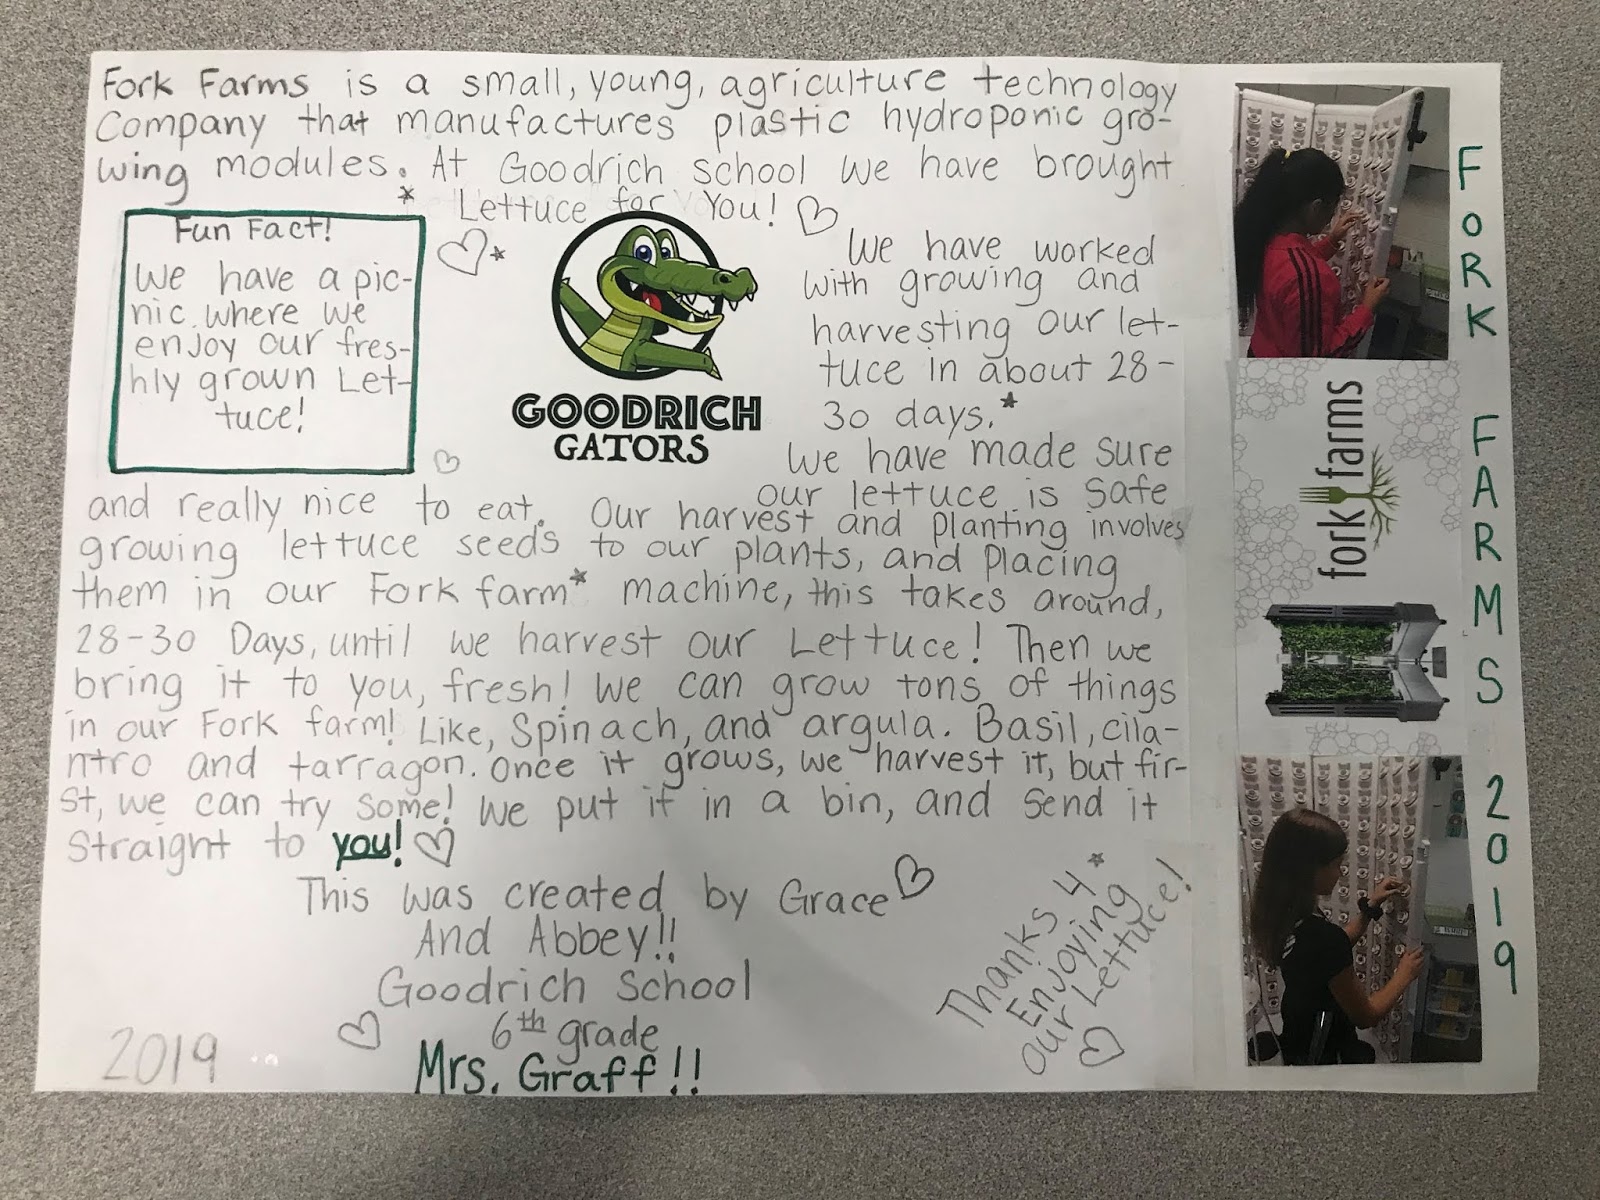 Fork Farms is a small, young, agriculture technology
Company that manufactures plastic hydroponic gro-
wing modules. At Goodrich school we have brought
* Lettuce for You!
Fun Fact!
We have a pic-
nic where we
enjoy our fres-
hly grown Let-
tuce!
GOODRICH
GATORS
We have worked
with growing and
harvesting our let-
tuce in about 28-
30 days.*
We have made sure
our lettuce is safe
and really nice to eat. Our harvest and planting involves
growing lettuce seeds to our plants, and placing
them in our Fork farm* machine, this takes around,
28-30 Days, until we harvest our Lettuce! Then we
bring it to you, fresh! We can grow tons of things
in our Fork farm! Like, Spinach, and argula. Basil, cila-
ntro and tarragon. Once it grows, we harvest it, but fir-
st, we can try some! We put it in a bin, and send it
straight to you!
This was created by Grace
And Abbey!!
Goodrich School
6th grade
Mrs. Graff!!
2019
Thanks 4 *
Enjoying
our Lettuce!
FORK FARMS 2019
fork farms